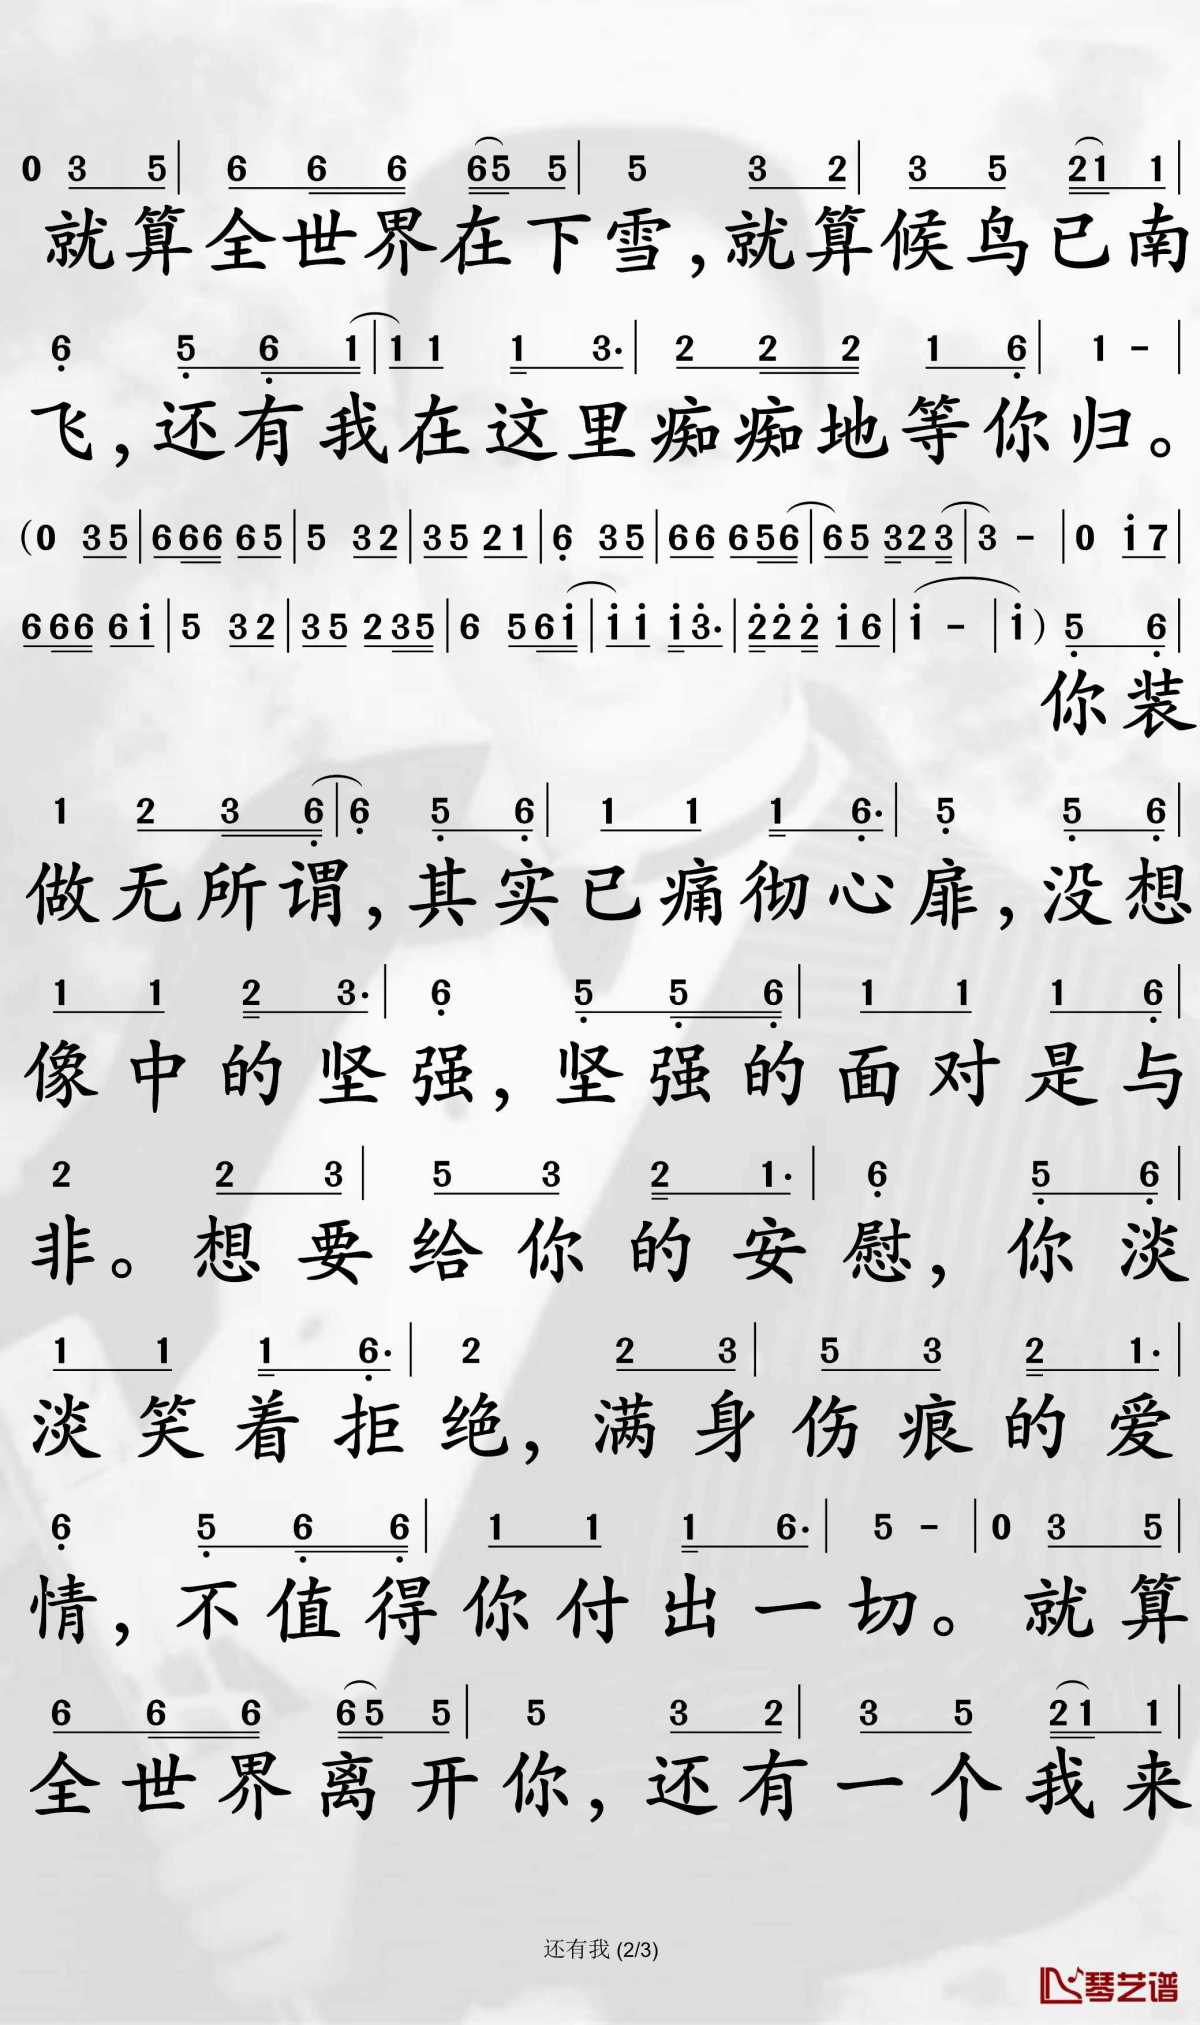 0 3 5 | 6 6 6 65 5 | 5 3 2 | 3 5 21 1 |
就算全世界在下雪,就算候鸟已南
6 5 6 1 | 1 1 1 3. | 2 2 2 1 6 | 1 - |
飞,还有我在这里痴痴地等你归。
(0 35 | 666 65 | 5 32 | 35 21 | 6 35 | 66 656 | 65 323 | 3 - | 0 17 |
666 61 | 5 32 | 35 235 | 6 561 | 11 13. | 222 16 | 1 - | 1) 5 6 |
你装
1 2 3 6 | 6 5 6 | 1 1 1 6. | 5 5 6 |
做无所谓,其实已痛彻心扉,没想
1 1 2 3. | 6 5 5 6 | 1 1 1 6 |
像中的坚强,坚强的面对是与
2 2 3 | 5 3 2 1. | 6 5 6 |
非。想要给你的安慰,你淡
1 1 1 6. | 2 2 3 | 5 3 2 1. |
淡笑着拒绝,满身伤痕的爱
6 5 6 6 | 1 1 1 6. | 5 - | 0 3 5 |
情,不值得你付出一切。就算
6 6 6 65 5 | 5 3 2 | 3 5 21 1 |
全世界离开你,还有一个我来
还有我 (2/3)
琴艺谱